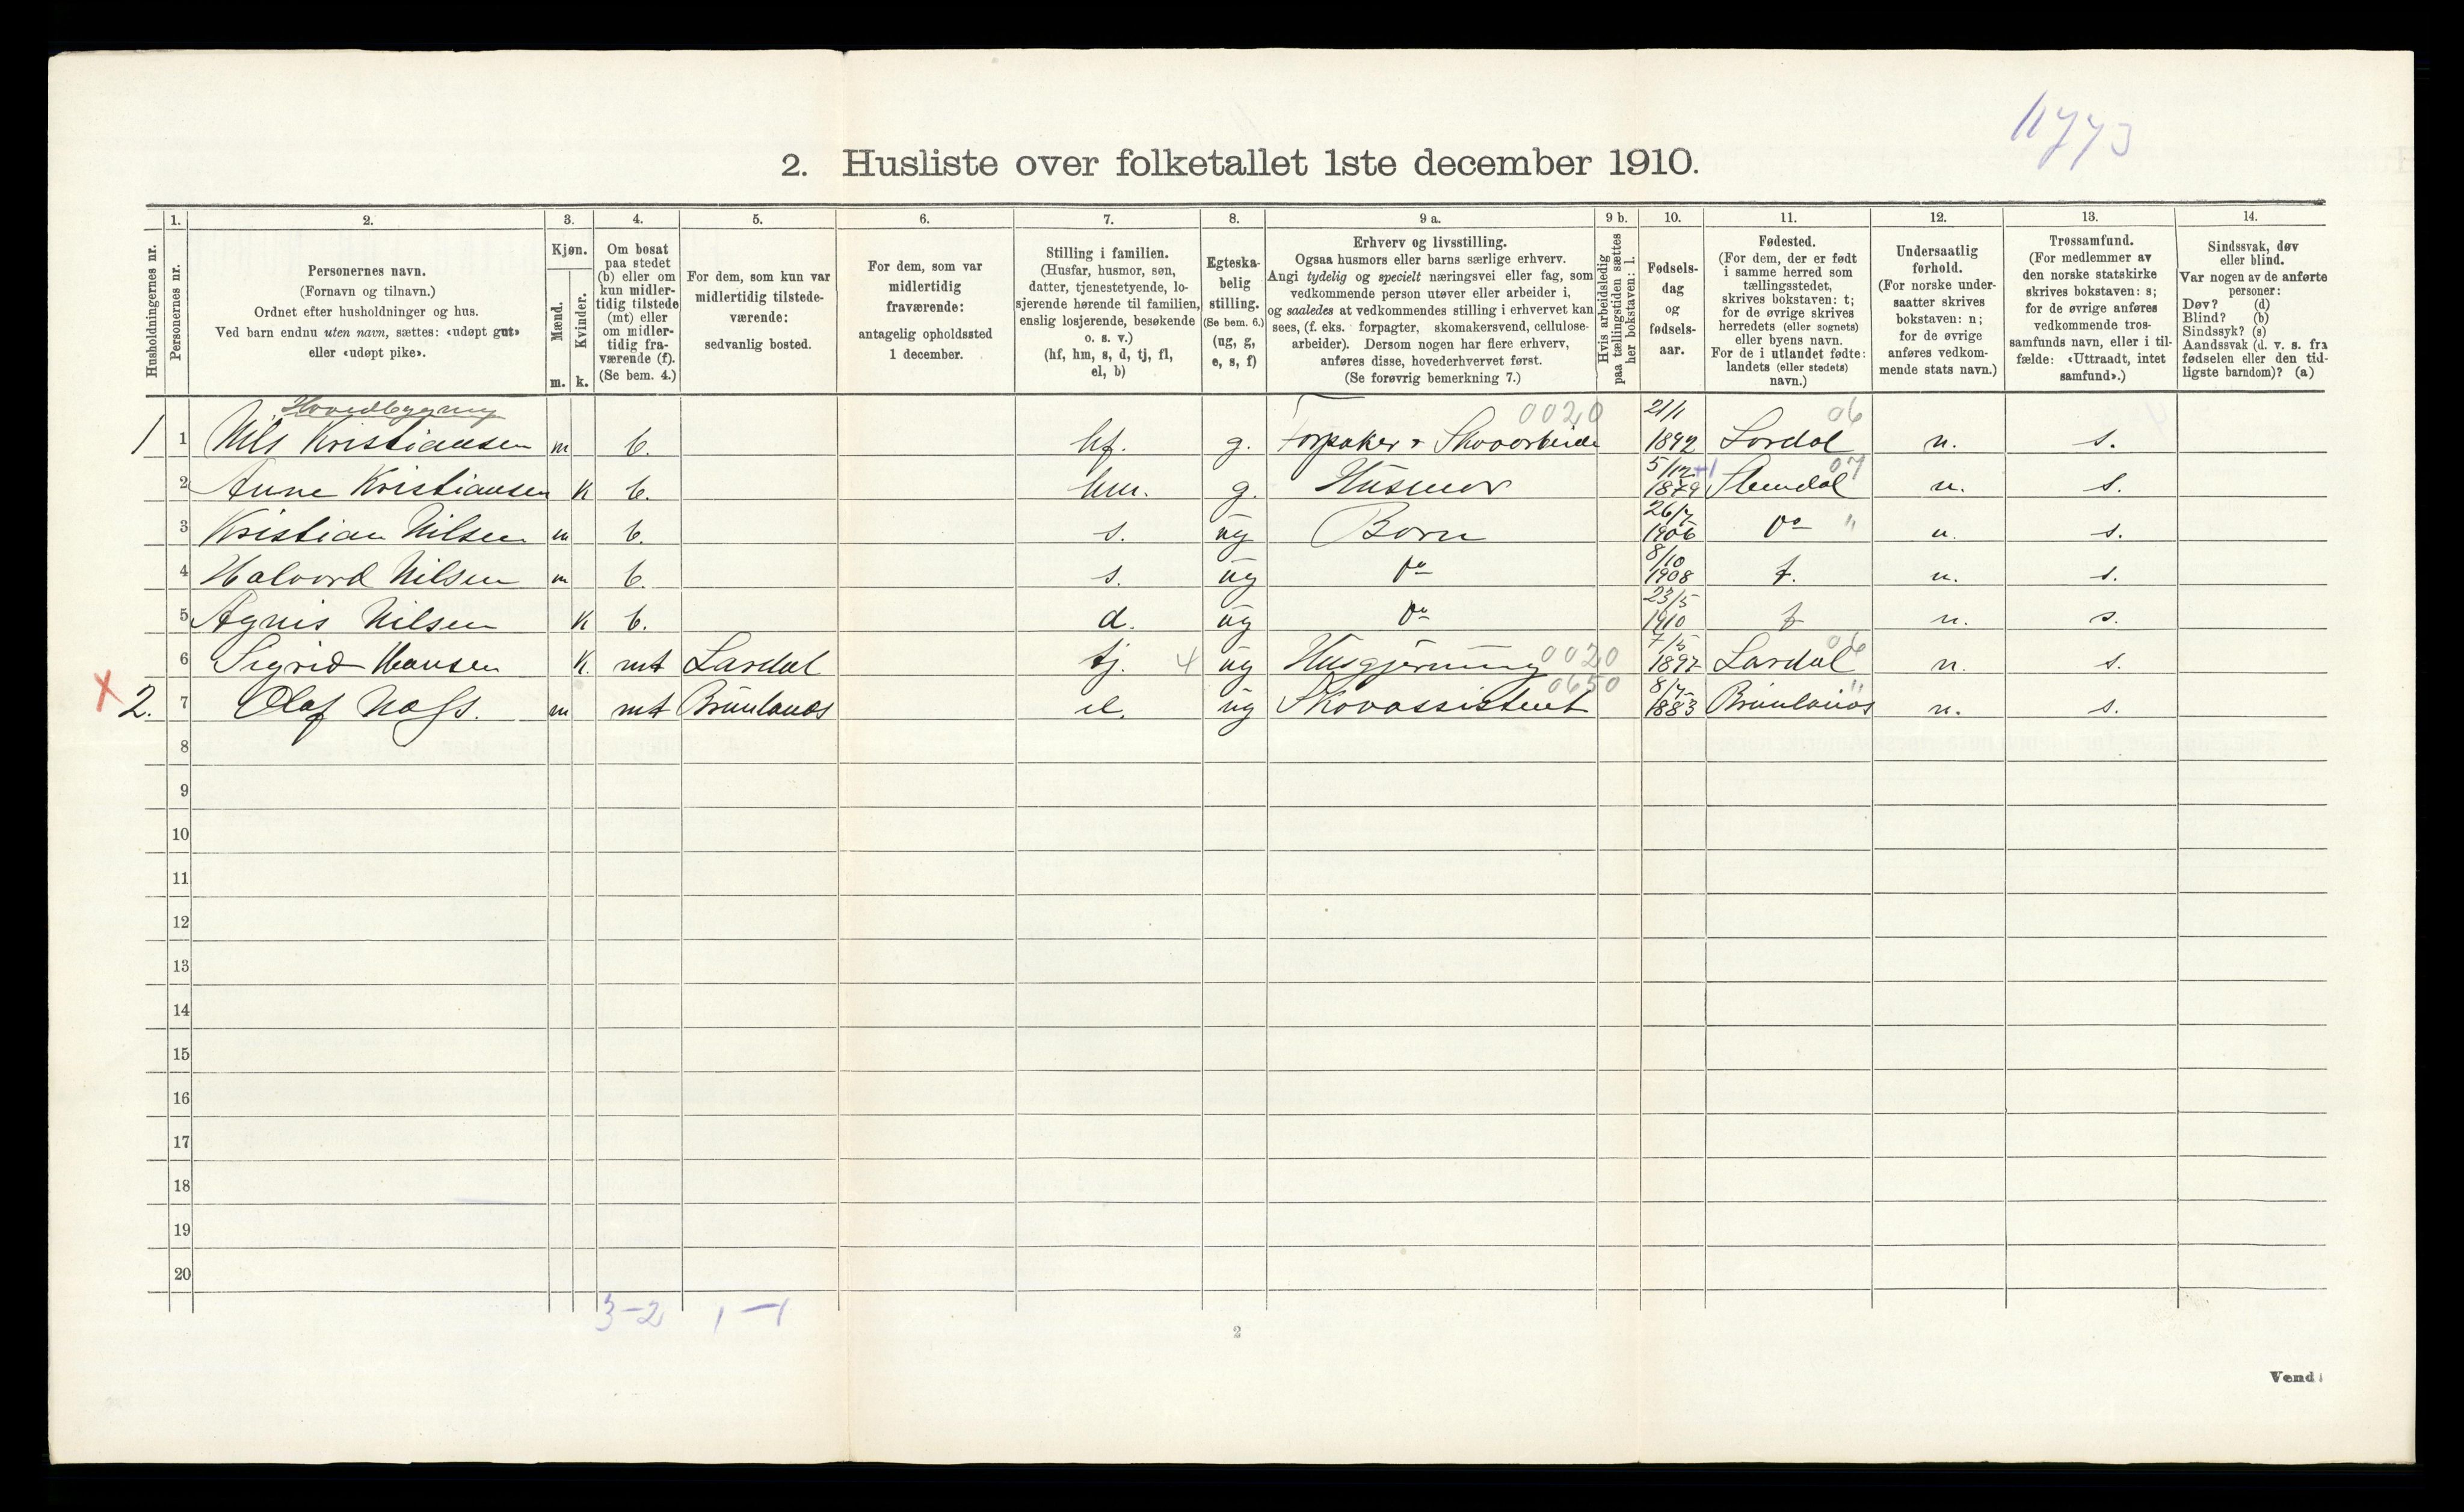 11773
2. Husliste over folketallet 1ste december 1910.
Husholdningernes nr.
1.
Personernes nr.
2.
Personernes navn.
(Fornavn og tilnavn.)
Ordnet efter husholdninger og hus.
Ved barn endnu uten navn, sættes: «udøpt gut»
eller «udøpt pike».
3.
Kjøn.
Mænd.
Kvinder.
m. k.
4.
Om bosat
paa stedet
(b) eller om
kun midler-
tidig tilstede
(mt) eller
om midler-
tidig fra-
værende (f).
(Se bem. 4.)
5.
For dem, som kun var
midlertidig tilstede-
værende:
sedvanlig bosted.
6.
For dem, som var
midlertidig
fraværende:
antagelig opholdssted
1 december.
7.
Stilling i familien.
(Husfar, husmor, søn,
datter, tjenestetyende, lo-
sjerende hørende til familien,
enslig losjerende, besøkende
o. s. v.)
(hf, hm, s, d, tj, fl,
el, b)
8.
Egteska-
belig
stilling.
(Se bem. 6.)
(ug, g,
e, s, f)
9 a.
Erhverv og livsstilling.
Ogsaa husmors eller barns særlige erhverv.
Angi tydelig og specielt næringsvei eller fag, som
vedkommende person utøver eller arbeider i,
og saaledes at vedkommendes stilling i erhvervet kan
sees, (f. eks. forpagter, skomakersvend, cellulose-
arbeider). Dersom nogen har flere erhverv,
anføres disse, hovederhvervet først.
(Se forøvrig bemerkning 7.)
9 b.
Hvis arbeidsledig
paa tællingstiden sættes
her bokstaven: l.
10.
Fødsels-
dag
og
fødsels-
aar.
11.
Fødested.
(For dem, der er født
i samme herred som
tællingsstedet,
skrives bokstaven: t;
for de øvrige skrives
herredets (eller sognets)
eller byens navn.
For de i utlandet fødte:
landets (eller stedets)
navn.)
12.
Undersaatlig
forhold.
(For norske under-
saatter skrives
bokstaven: n;
for de øvrige
anføres vedkom-
mende stats navn.)
13.
Trossamfund.
(For medlemmer av
den norske statskirke
skrives bokstaven: s;
for de øvrige anføres
vedkommende tros-
samfunds navn, eller i til-
fælde: «Uttraadt, intet
samfund».)
14.
Sindssvak, døv
eller blind.
Var nogen av de anførte
personer:
Døv? (d)
Blind? (b)
Sindssyk? (s)
Aandssvak (d. v. s. fra
fødselen eller den tid-
ligste barndom)? (a)
Hovedbygning 0020 21/1 06
1 1 Nils Kristiansen m b. hf. g. Forpakter + Skovarbeide 1892 Lardal n. s.
5/12 +1 07
2 Anne Kristiansen k b. hm. g. Husmor 1879 Slemdal n. s.
26/7
3 Kristian Nilsen m b. s. ug Børn 1906 Do " n. s.
8/10
4 Halvord Nilsen m b. s. ug Do 1908 t. n. s.
23/5
5 Agnis Nilsen k b. d. ug Do 1910 t n. s.
7/5 06
6 Sigrid Hansen k. mt Lardal tj. 4 ug Husgjerning 0020 1897 Lardal n. s.
0650 8/7 "
X 2. 7 Olaf m mt Brunlanæs el. ug Skovassistent 1883 Brunlanæs n. s.
8
9
10
11
12
13
14
15
16
17
18
19
20
3-2 1-1
2
Vend!